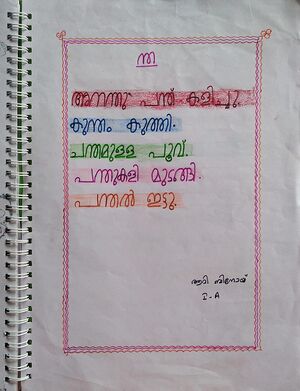 ന്ത
അനന്തു പന്ത് കളിച്ചു.
കുന്തം കുത്തി.
ചന്തമുള്ള പൂവ്.
പന്തുകളി മുടങ്ങി.
പന്തൽ ഇട്ടു.
ആദി ബിനോയ്
I-A